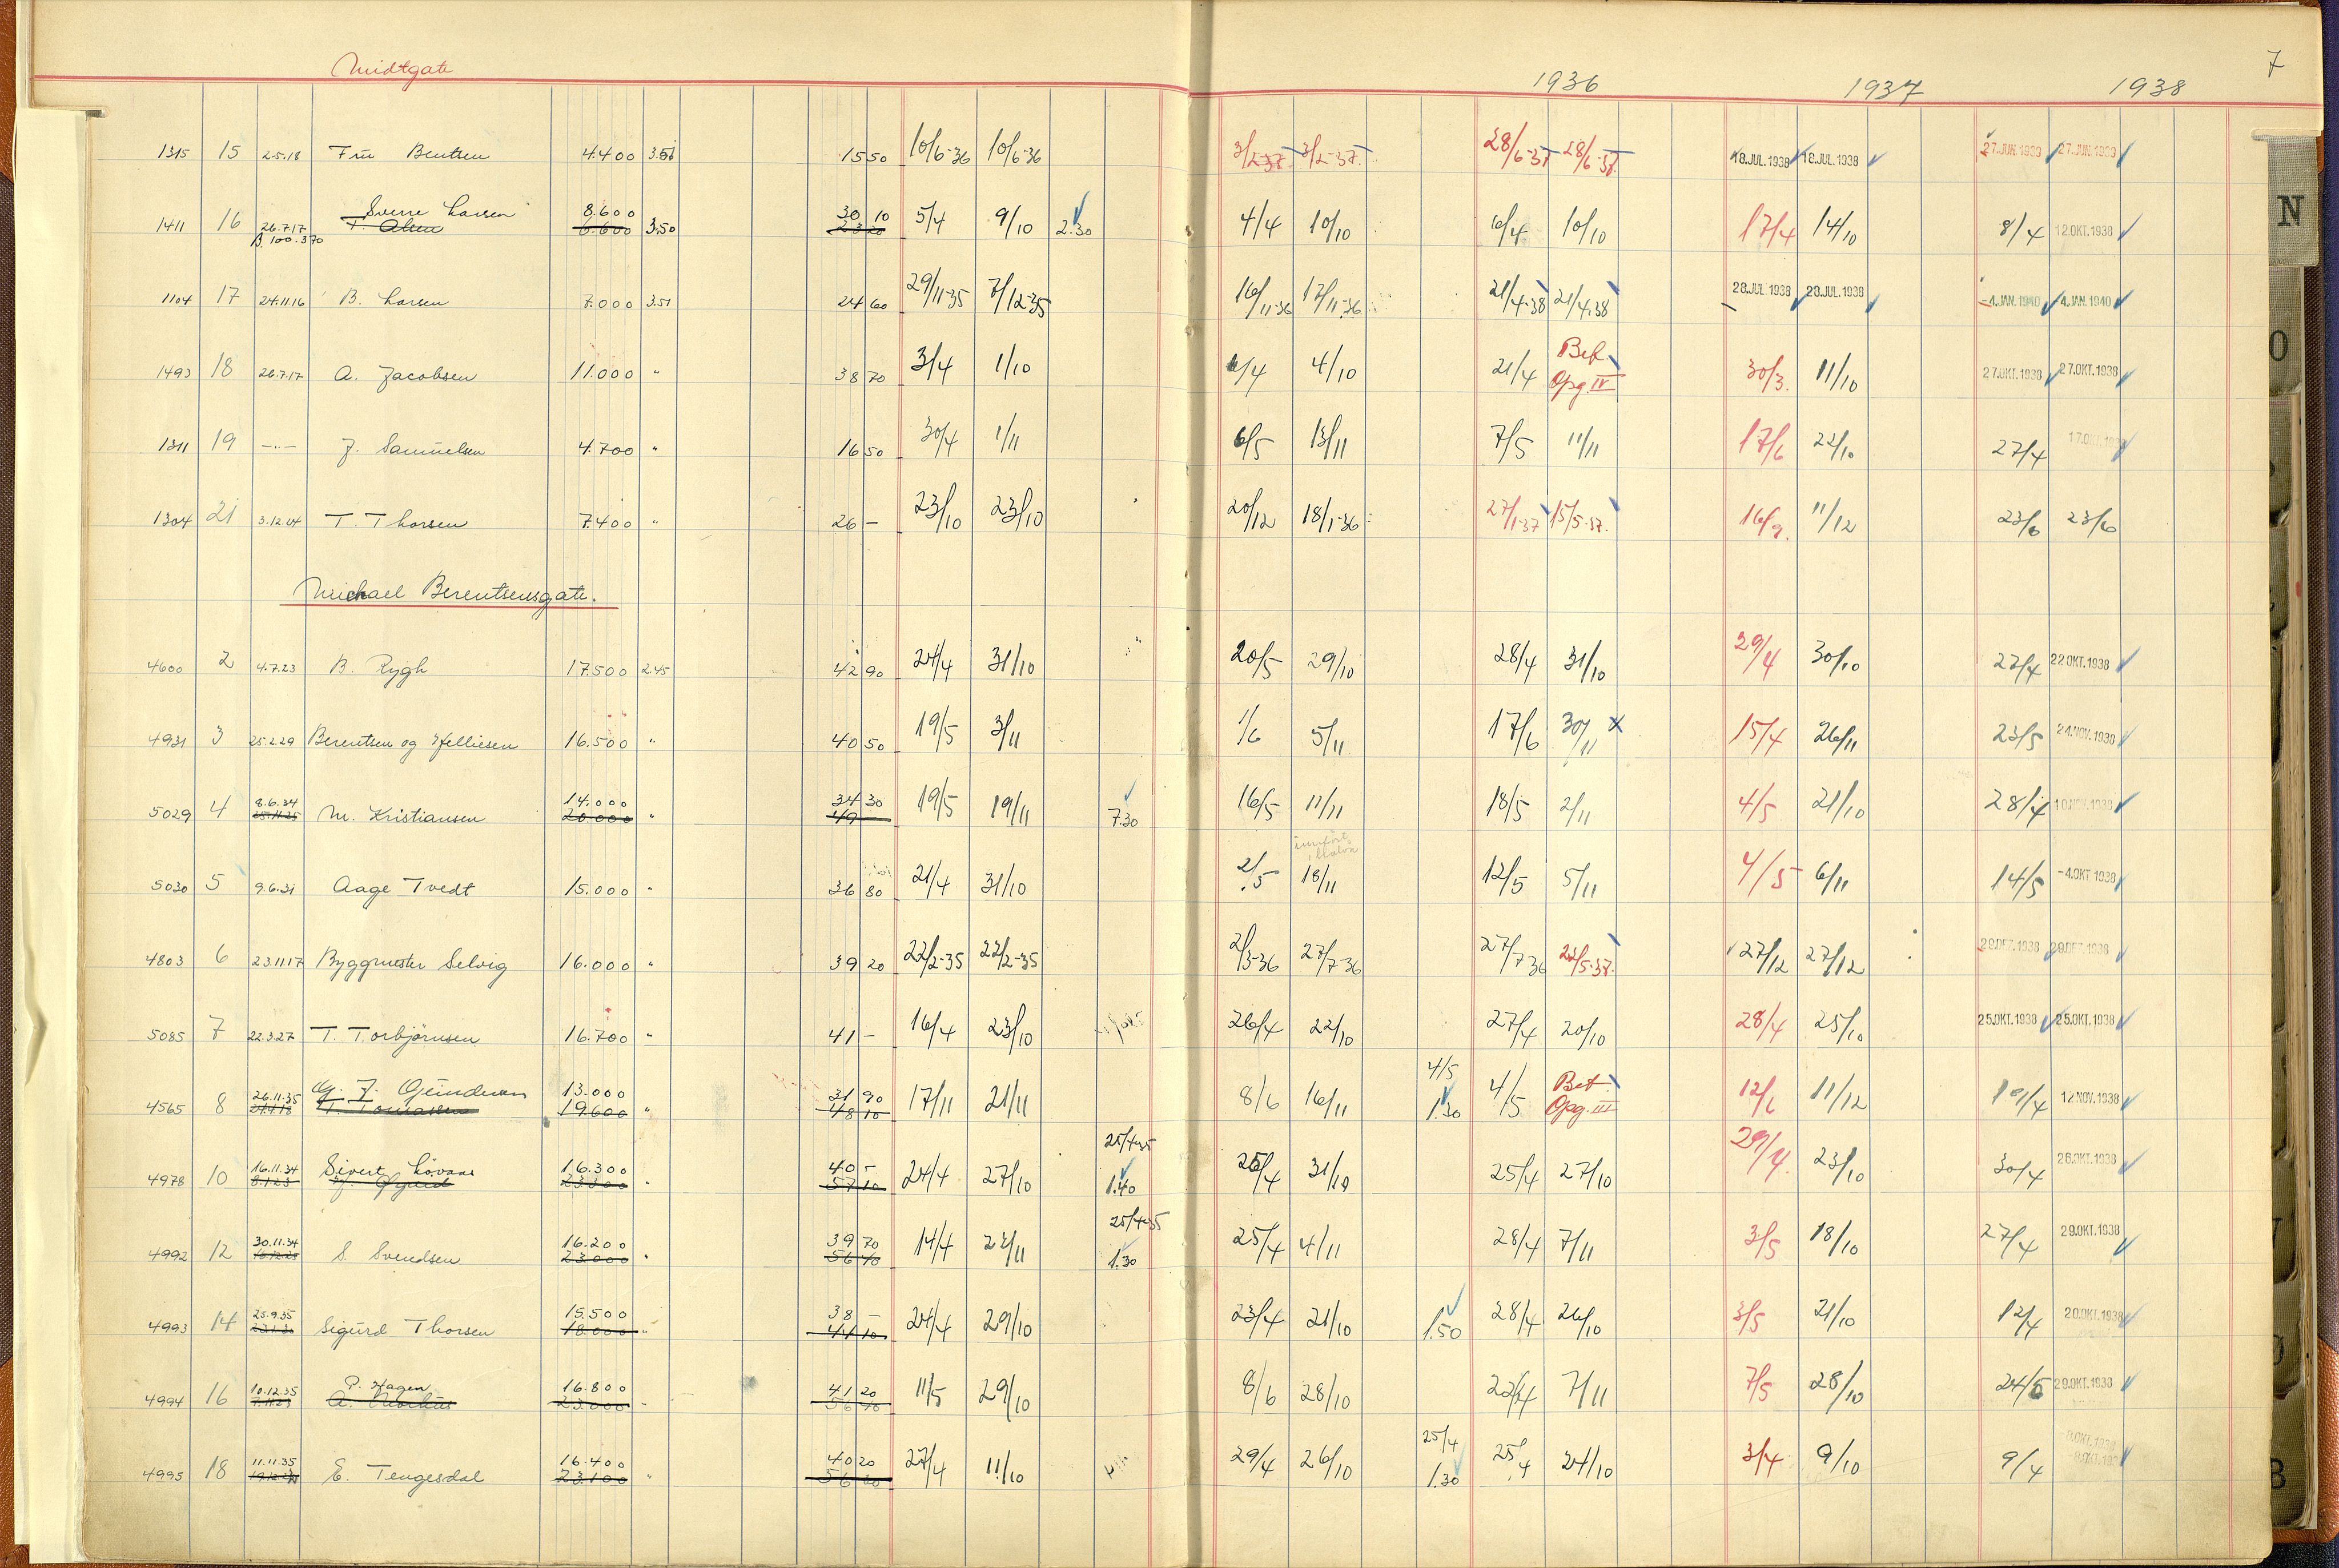 Midtgate
1936 1937 1938 7
1315 15 2.5.18 Frü Bentsen 4.400 15 50 10/6-36 10/6-36 3/2-37. 3/2-37. 28/6-37 28/6-38. 18.JUL.1938 18.JUL.1938 27.JUN.1939 27.JUN.1939
Sverre Larsen 8.600 30 10
1411 16 26.7.17 T. Olsen 6.600 3.50 23 20 5/4 9/10 2.30 4/4 10/10 6/4 10/10 17/4 14/10 8/4 12.OKT.1938
B. 100.370
1104 17 24.11.16 B. Larsen 7.000 3.51 24 60 29/11-35 7/12-35 16/11-36 17/11-36 21/4-38 21/4.38 28.JUL.1938 28.JUL.1938 -4.JAN.1940 -4.JAN.1940
1493 18 26.7.17 A. Jacobsen 11.000 " 38 70 3/4 1/10 4/10 21/4 Bet. Opg. IV 30/3. 11/10 27.OKT.1938 27.OKT.1938
1311 19 —"— J. Samüelsen 4.700 " 16 50 30/4 1/11 6/5 13/11 7/5 11/11 17/6 22/10 27/4
1304 21 3.12.04 T. Thorsen 7.400 " 26 — 23/10 23/10 20/12 18/1-36 27/1-37 15/5-37. 16/9. 11/12 23/6 23/6
Michael Berentsensgate.
4600 2 4.7.23 B. Rygh 17.500 2.45 42 90 24/4 31/10 20/5 29/10 28/4 31/10 29/4 30/10 22/4 22.OKT.1938
4931 3 25.2.29 Berentsen og Helliesen 16.500 " 40 50 19/5 3/11 1/6 5/11 17/6 30/11 x 15/4 26/11 23/5 24.NOV.1938
8.6.34 14.000 34 30
5029 4 25.11.25 M. Kristiansen 20.000 " 49 19/5 19/11 7.30 16/5 11/11 18/5 2/11 4/5 21/10 28/4 10.NOV.1938
5030 5 9.6.31 Aage Tvedt 15.000 " 36 80 21/4 31/10 2/5 18/11 12/5 5/11 4/5 6/11 14/5 -4.OKT.1938
4803 6 23.11.17 Byggmester Selvig 16.000 " 39 20 22/2-35 22/2-35 2/3-36 27/7-36 27/7-36 22/5-37. 27/12 27/12 29.DEZ.1938 29.DEZ.1938
5085 7 22.3.27 T. Torbjörnsen 16.700 " 41 — 16/4 23/10 26/4 22/10 27/4 20/10 28/4 25/10 25.OKT.1938 25.OKT.1938
26.11.35 G. J. Gündersen 13.000 31 90 4/5
4565 8 T. Tomassen 19600 " 48 10 17/11 21/11 8/6 16/11 1.30 4/5 Bet. Opg. III 12/6 11/12 12.NOV.1938
16.11.34 Sivert Lövaas 16.300 40 - 25/4-35
4978 10 8.1.23 23.300 " 57 10 24/4 27/10 1.40 25/4 31/10 25/4 27/10 29/4. 23/10 30/4 26.OKT.1938
30.11.34 16.200 39 70 25/4-35
4992 12 S. Svendsen 23.000 " 56 40 14/4 1.30 25/4 4/11 28/4 7/11 3/5 18/10 27/4 29.OKT.1938
25.9.35 15.500 38 —
4993 14 Sigürd Thorsen 18.000 " 44 10 24/4 29/10 23/4 21/10 1.50 28/4 26/10 3/5 21/10 12/4 20.OKT.1938
10.12.35 P. Hagen 16.800 41 20
4994 16 23.000 56 40 11/5 29/10 8/6 28/10 22/4 7/11 7/5 28/10 24/5 29.OKT.1938
11.11.35 16.400 40 20 25/4
4995 18 E. Tengesdal 23.100 " 27/4 11/10 29/4 26/10 1.30 25/4 24/10 3/4 9/10 9/4
N
O